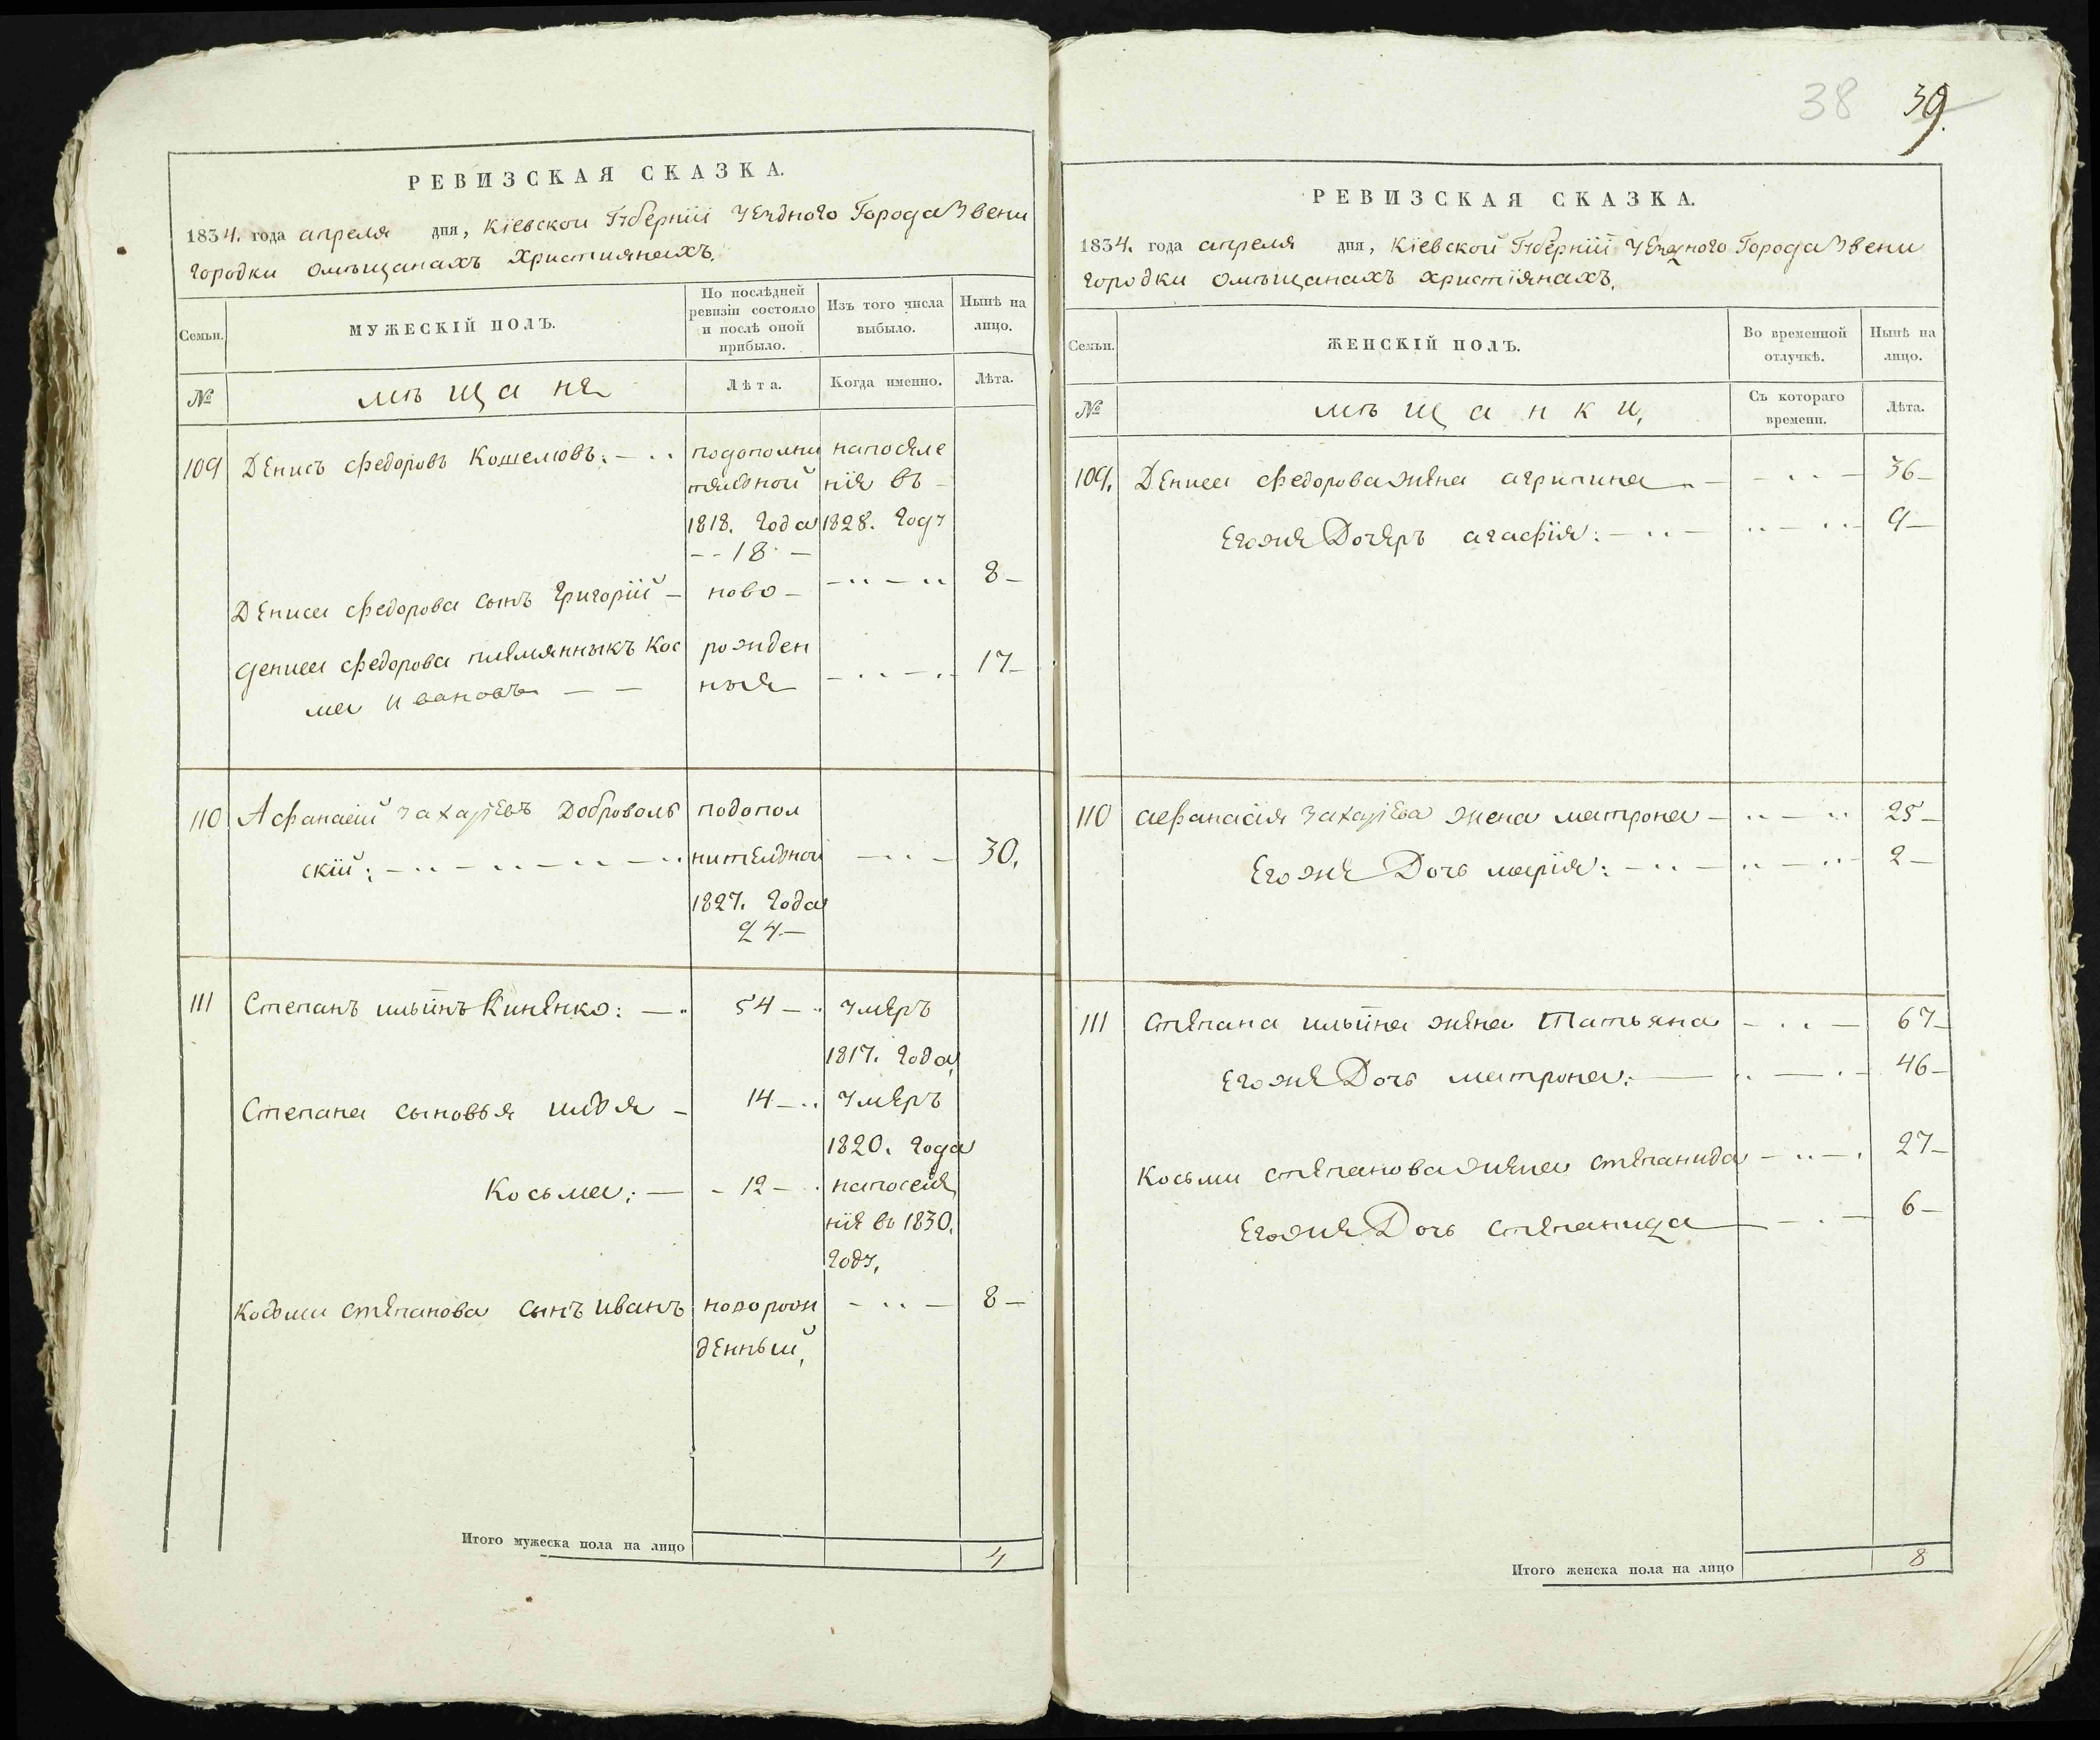 РЕВИЗСКАЯ СКАЗКА.
1834. года апреля дня, Кіевской Губерніи Уезднаго Города Звени
городки омѣщанахъ християнахъ.
Семьи.
МУЖЕСКІЙ ПОЛЪ.
По послѣдней
ревизіи состояло
и послѣ оной
прибыло.
Изъ того числа
выбыло.
Нынѣ на
лицо.
№
мѣщане
Лѣта.
Когда именно.
Лѣта.
109 Денисъ Федоровъ Кошелювъ: подополни напоселе
тельной ніе въ
1818. Года 1828. Году
18
Дениса Федорова сынъ Григорій ново 8
Дениса Федорова племянныкъ Кос рожден 17
ма Ивановъ ныя
110 Афанасій Захарјевъ Доброволь подопол
скій: нительной 30.
1827. Года
24
111 Степанъ ильинъ Киненко: 54 умеръ
1817. Года,
Степана сыновья илья 14 умеръ
1820. Года
Косьма: 12 напоселе
ніе въ 1830.
Году,
Косьми Степанова сынъ иванъ новорож 8
денный,
Итого мужеска пола на лицо 4
38 39
РЕВИЗСКАЯ СКАЗКА.
1834. года апреля дня, Кіевской Губерніи Уездного Города Звени
городки омѣщанахъ христіянахъ,
Семьи.
ЖЕНСКІЙ ПОЛЪ.
Во временной
отлучкѣ.
Нынѣ на
лицо.
№
мѣщанки,
Съ котораго
времени.
Лѣта.
109. Дениса Федорова жена агрипина 36
Егоже Дочерь агафія: 9
110 афанасія Захарјева жена матрона 25
Егоже Дочь марія: 2
111 Степана ильина жена Татьяна 67
Егоже Дочь матрона: 46
Косьми степанова жена степанида 27
Егоже Дочь степанида 6
Итого женска пола на лицо 8